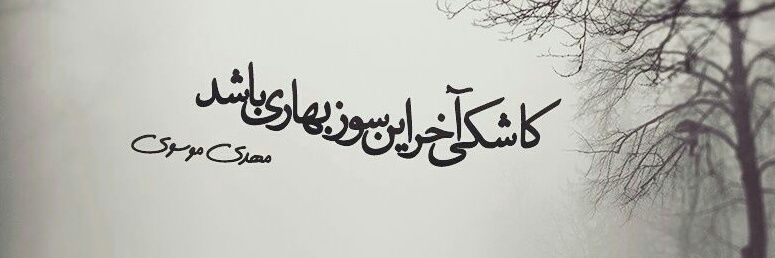 کاشکی آخر این سوز بهاری باشد
مهدی موسوی